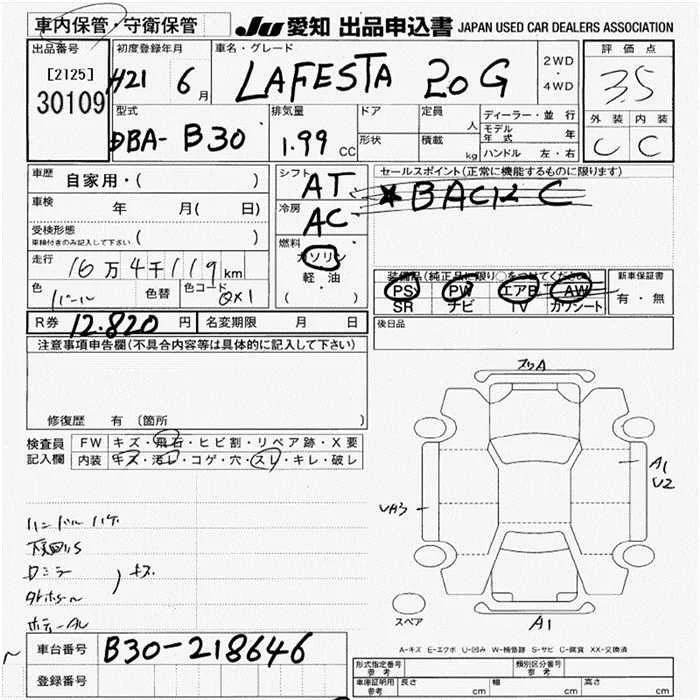 車内保管・守衛保管
JU 愛知 出品申込書 JAPAN USED CAR DEALERS ASSOCIATION
出品番号
[2125]
30109
初度登録年月
H21 6月
車名・グレード
LAFESTA 20G
2WD
・
4WD
評価点
3.5
外装 内装
C C
型式
DBA- B30
排気量
1.99 CC
ドア
形状
定員
人
積載
kg
ディーラー・並行
モデル年式 年
ハンドル 左・右
車歴 自家用・( )
車検 年 月( 日)
受検形態
車検付きのみ記入して下さい ( )
走行 16万4千119km
色 パール 色替 色コード QX1
シフト AT
冷房 AC
燃料
ガソリン
軽・油
( )
セールスポイント(正常に機能するものに限ります)
★BACK C
装備品(純正品に限り○をつけてください)
PS PW エアB AW
SR ナビ TV カワシート
新車保証書
有・無
R券 12.820 円 名変期限 月 日
後日品
注意事項申告欄(不具合内容等は具体的に記入して下さい)
修復歴 有 〔箇所 〕
検査員記入欄
FW キズ・飛石・ヒビ割・リペア跡・X要
内装 キズ・汚レ・コゲ・穴・スレ・キレ・破レ
ハンドル ハゲ
キズ
スリA
A1
U2
UA3
A1
スペア
車台番号 B30-218646
登録番号
A-キズ E-エクボ U-凹み W-補修跡 S-サビ C-腐食 XX-交換済
形式指定番号 参考
類別区分番号 参考
車庫証明用 参考 長さ cm 幅 cm 高さ cm